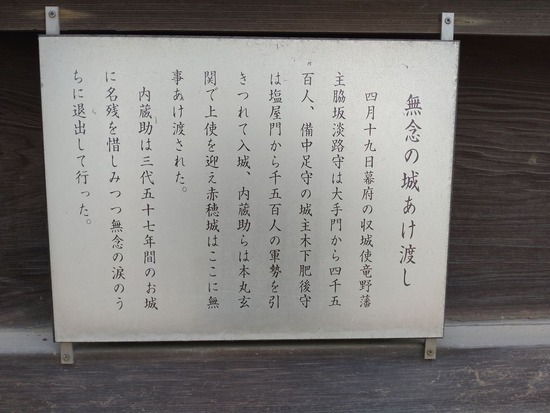 無念の城あけ渡し
四月十九日幕府の収城使竜野藩
主脇坂淡路守は大手門から四千五
百人、備中足守の城主木下肥後守
は塩屋門から千五百人の軍勢を引
きつれて入城、内蔵助らは本丸玄
関で上使を迎え赤穂城はここに無
事あけ渡された。
内蔵助は三代五十七年間のお城
に名残を惜しみつつ無念の涙のう
ちに退出して行った。